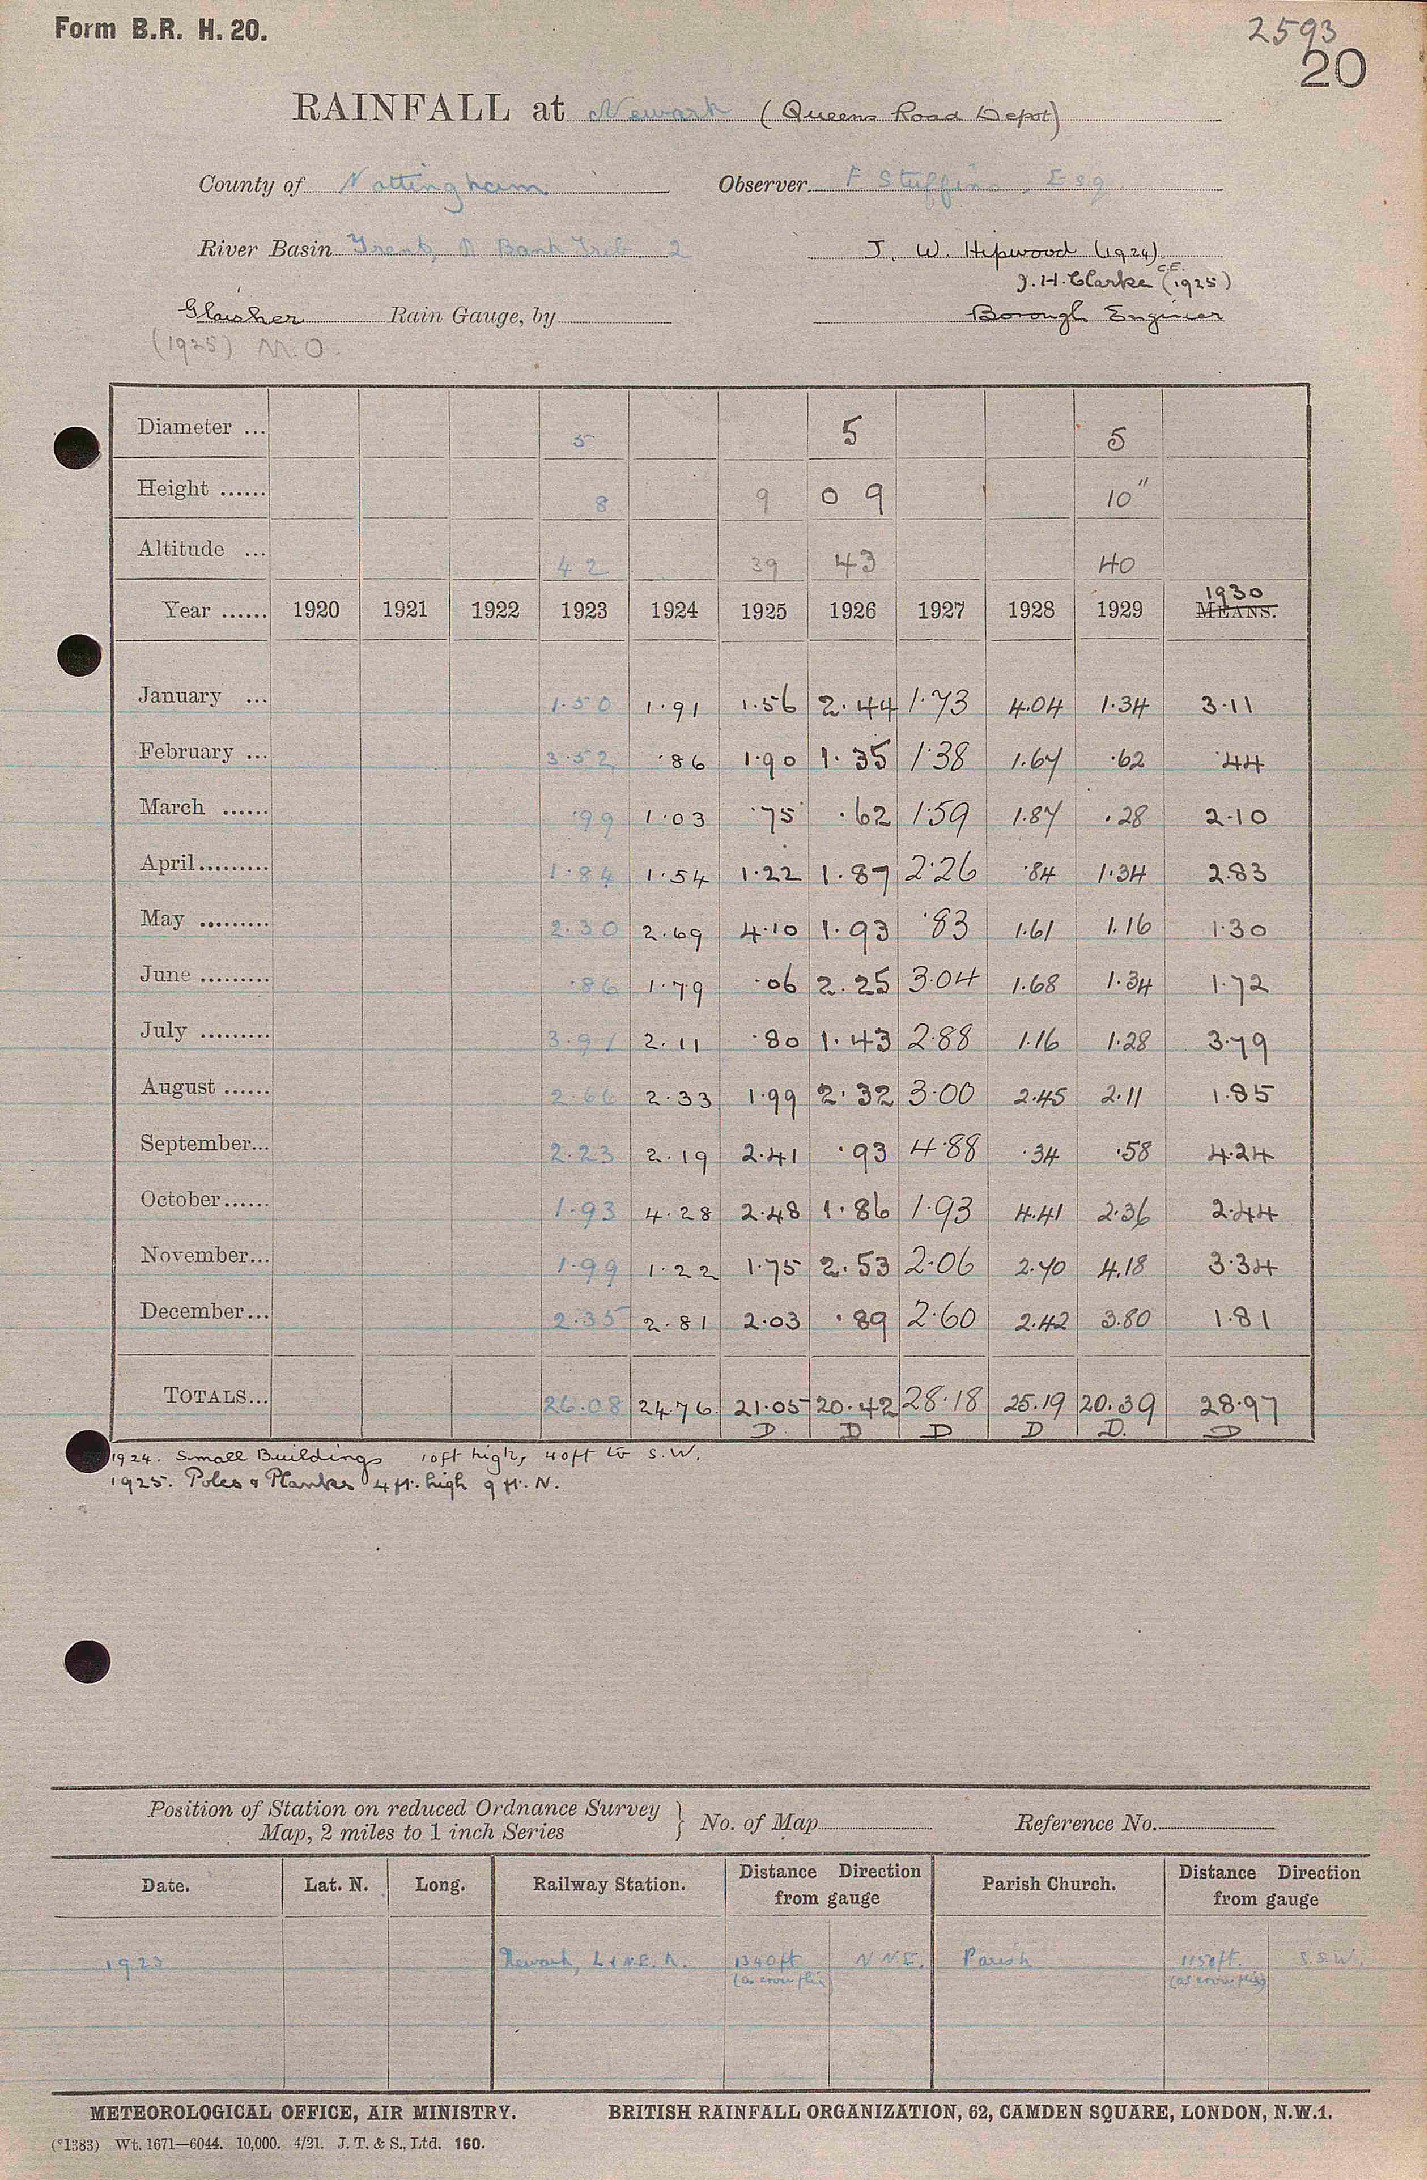 Form B.R. H. 20.
2593
20
RAINFALL at Newark (Queens Road Depot)
County of Nottingham Observer F Stuffins, Esq
River Basin Trent, R Bank Trib 2 J. W. Hipwood (1924)
J. H. Clarke C.E. (1925)
Glaisher Rain Gauge, by Borough Engineer
(1925) M.O.
Diameter ... 5 5 5
Height ...... 8 9 0 9 10"
Altitude ... 42 39 43 40
Year ...... 1920 1921 1922 1923 1924 1925 1926 1927 1928 1929 1930 MEANS.
January ... 1.50 1.91 1.56 2.44 1.73 4.04 1.34 3.11
February ... 3.52 .86 1.90 1.35 1.38 1.67 .62 .44
March ...... .99 1.03 .75 .62 1.59 1.87 .28 2.10
April ......... 1.84 1.54 1.22 1.87 2.26 .84 1.34 2.83
May ......... 2.30 2.69 4.10 1.93 .83 1.61 1.16 1.30
June ......... .86 1.79 .06 2.25 3.04 1.68 1.34 1.72
July ......... 3.91 2.11 .80 1.43 2.88 1.16 1.28 3.79
August ...... 2.66 2.33 1.99 2.32 3.00 2.45 2.11 1.85
September... 2.23 2.19 2.41 .93 4.88 .34 .58 4.24
October...... 1.93 4.28 2.48 1.86 1.93 4.41 2.36 2.44
November... 1.99 1.22 1.75 2.53 2.06 2.70 4.18 3.34
December... 2.35 2.81 2.03 .89 2.60 2.42 3.80 1.81
TOTALS... 26.08 24.76 21.05 20.42 28.18 25.19 20.39 28.97
D. D D D D. D
1924. Small Buildings 10ft high, 40ft to S.W.
1925. Poles & Planks 4 ft. high 9 ft. N.
Position of Station on reduced Ordnance Survey
Map, 2 miles to 1 inch Series } No. of Map Reference No.
Date. Lat. N. Long. Railway Station. Distance Direction from gauge Parish Church. Distance Direction from gauge
1923 Newark, L & N.E. R. 1340ft N N.E. Parish 1150ft. S.S.W.
(as crow flies) (as crow flies)
METEOROLOGICAL OFFICE, AIR MINISTRY. BRITISH RAINFALL ORGANIZATION, 62, CAMDEN SQUARE, LONDON, N.W.1.
(*1383) Wt. 1671—6044. 10,000. 4/21. J. T. & S., Ltd. 160.